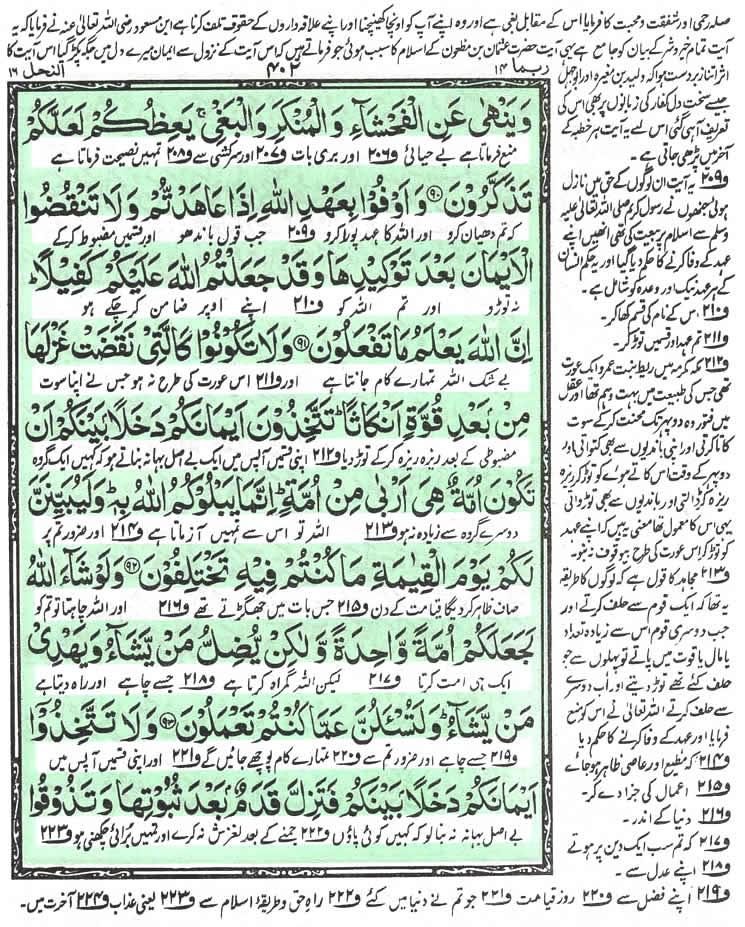 صلہ رحمی اور شفقت و محبت کا فرمایا اس کے مقابل بغی ہے اور وہ اپنے آپ کو اونچا کھینچنا اور اپنے علاقہ داروں کے حقوق تلف کرنا ہے ابن مسعود رضی اللہ تعالیٰ عنہ نے فرمایا کہ یہ
آیت تمام خیر و شر کے بیان کو جامع ہے یہی آیت حضرت عثمان بن مظعون کے اسلام کا سبب ہوئی جو فرماتے ہیں کہ اس آیت کے نزول سے ایمان میرے دل میں جگہ پکڑ گیا اس آیت کا
النحل ۱۶
۴۰۲
ربما ۱۴
اثر اتنا زبردست ہوا کہ ولید بن مغیرہ اور ابوجہل
جیسے سخت دل کفار کی زبانوں پر بھی اس کی
تعریف آ ہی گئی اس لیے یہ آیت ہر خطبہ کے
آخر میں پڑھی جاتی ہے۔
و۲۰۹ یہ آیت ان لوگوں کے حق میں نازل
ہوئی جنھوں نے رسول کریم صلی اللہ تعالیٰ علیہ
وسلم سے اسلام پر بیعت کی تھی انھیں اپنے
عہد کے وفا کرنے کا حکم دیا گیا اور یہ حکم انسان
کے ہر عہد نیک اور وعدہ کو شامل ہے۔
و۲۱۰ اس کے نام کی قسم کھا کر۔
و۲۱۱ تم عہد اور قسمیں توڑ کر۔
و۲۱۲ مکہ مکرمہ میں ریطہ بنت عمرو ایک عورت
تھی جس کی طبیعت میں بہت وہم تھا اور عقل
میں فتور وہ دوپہر تک محنت کر کے سوت
کاتا کرتی اور اپنی باندیوں سے بھی کتواتی اور
دوپہر کے وقت اس کاتے ہوئے کو توڑ کر ریزہ
ریزہ کر ڈالتی اور باندیوں سے بھی تڑواتی
یہی اس کا معمول تھا معنی یہ ہیں کہ اپنے عہد
کو توڑ کر اس عورت کی طرح بیوقوف نہ بنو۔
و۲۱۳ مجاہد کا قول ہے کہ لوگوں کا طریقہ
یہ تھا کہ ایک قوم سے حلف کرتے اور
جب دوسری قوم اس سے زیادہ تعداد
یا مال یا قوت میں پاتے تو پہلوں سے جو
حلف کئے تھے توڑ دیتے اور اب دوسرے
سے حلف کرتے اللہ تعالیٰ نے اس کو منع
فرمایا اور عہد کے وفا کرنے کا حکم دیا
و۲۱۴ کہ مطیع اور عاصی ظاہر ہو جائے
و۲۱۵ اعمال کی جزا دے کر۔
و۲۱۶ دنیا کے اندر۔
و۲۱۷ کہ تم سب ایک دین پر ہوتے
و۲۱۸ اپنے عدل سے۔
وَيَنْهٰى عَنِ الْفَحْشَآءِ وَالْمُنْكَرِ وَالْبَغْيِ ۚ يَعِظُكُمْ لَعَلَّكُمْ
منع فرماتا ہے بے حیائی و۲۰۶ اور بری بات و۲۰۷ اور سرکشی سے و۲۰۸ تمہیں نصیحت فرماتا ہے
تَذَكَّرُوْنَ ۹۰ وَاَوْفُوْا بِعَهْدِ اللّٰهِ اِذَا عَاهَدْتُّمْ وَلَا تَنْقُضُوا
کہ تم دھیان کرو اور اللہ کا عہد پورا کرو و۲۰۹ جب قول باندھو اور قسمیں مضبوط کر کے
الْاَيْمَانَ بَعْدَ تَوْكِيْدِهَا وَقَدْ جَعَلْتُمُ اللّٰهَ عَلَيْكُمْ كَفِيْلًا ؕ
نہ توڑو اور تم اللہ کو و۲۱۰ اپنے اوپر ضامن کر چکے ہو
اِنَّ اللّٰهَ يَعْلَمُ مَا تَفْعَلُوْنَ ۹۱ وَلَا تَكُوْنُوْا كَالَّتِيْ نَقَضَتْ غَزْلَهَا
بے شک اللہ تمہارے کام جانتا ہے اور و۲۱۱ اس عورت کی طرح نہ ہو جس نے اپنا سوت
مِنْۢ بَعْدِ قُوَّةٍ اَنْكَاثًا ؕ تَتَّخِذُوْنَ اَيْمَانَكُمْ دَخَلًۢا بَيْنَكُمْ اَنْ
مضبوطی کے بعد ریزہ ریزہ کر کے توڑ دیا و۲۱۲ اپنی قسمیں آپس میں ایک بے اصل بہانہ بناتے ہو کہ کہیں ایک گروہ
تَكُوْنَ اُمَّةٌ هِيَ اَرْبٰى مِنْ اُمَّةٍ ؕ اِنَّمَا يَبْلُوْكُمُ اللّٰهُ بِهٖ ؕ وَلَيُبَيِّنَنَّ
دوسرے گروہ سے زیادہ نہ ہو و۲۱۳ اللہ تو اس سے تمہیں آزماتا ہے و۲۱۴ اور ضرور تم پر
لَكُمْ يَوْمَ الْقِيٰمَةِ مَا كُنْتُمْ فِيْهِ تَخْتَلِفُوْنَ ۹۲ وَلَوْ شَآءَ اللّٰهُ
صاف ظاہر کر دے گا قیامت کے دن و۲۱۵ جس بات میں جھگڑتے تھے و۲۱۶ اور اللہ چاہتا تو تم کو
لَجَعَلَكُمْ اُمَّةً وَّاحِدَةً وَّلٰكِنْ يُّضِلُّ مَنْ يَّشَآءُ وَيَهْدِيْ
ایک ہی امت کرتا و۲۱۷ لیکن اللہ گمراہ کرتا ہے و۲۱۸ جسے چاہے اور راہ دیتا ہے
مَنْ يَّشَآءُ ؕ وَلَتُسْـَٔلُنَّ عَمَّا كُنْتُمْ تَعْمَلُوْنَ ۹۳ وَلَا تَتَّخِذُوْٓا
و۲۱۹ جسے چاہے اور ضرور تم سے و۲۲۰ تمہارے کام پوچھے جائیں گے و۲۲۱ اور اپنی قسمیں آپس میں
اَيْمَانَكُمْ دَخَلًۢا بَيْنَكُمْ فَتَزِلَّ قَدَمٌۢ بَعْدَ ثُبُوْتِهَا وَتَذُوْقُوا
بے اصل بہانہ نہ بنا لو کہ کہیں کوئی پاؤں و۲۲۲ جمنے کے بعد لغزش نہ کرے اور تمہیں برائی چکھنی ہو و۲۲۳
و۲۱۹ اپنے فضل سے و۲۲۰ روز قیامت و۲۲۱ جو تم نے دنیا میں کئے و۲۲۲ راہ حق و طریقۂ اسلام سے و۲۲۳ یعنی عذاب و۲۲۴ آخرت میں۔